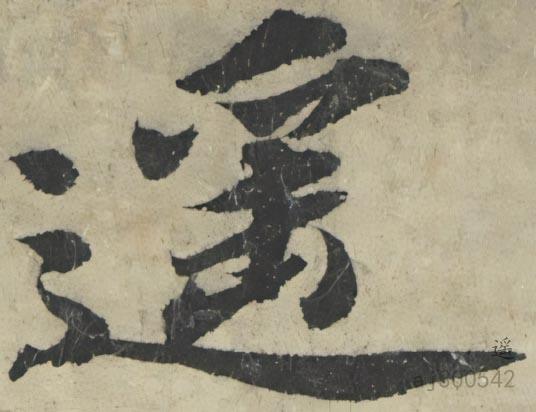 遥
遥
aj600542